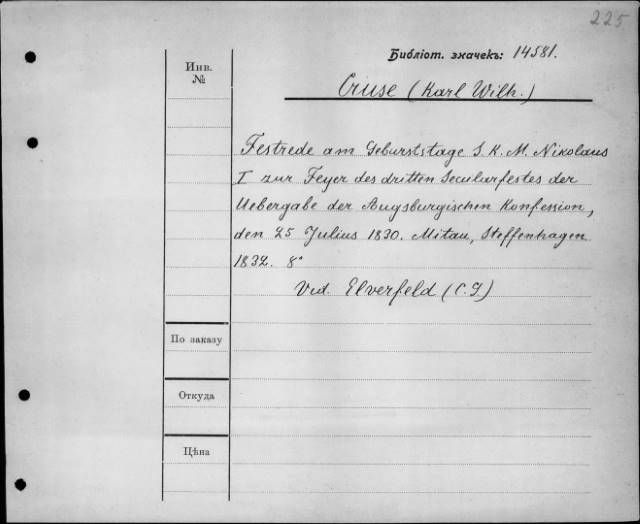 225
Библіот. значекъ: 14581.
Инв.
№
Cruse (Karl Wilh.)
Festrede am Geburststage S. K. M. Nikolaus
I zur Feyer des dritten Secularfestes der
Uebergabe der Augsburgischen Konfession,
den 25 Julius 1830. Mitau, Steffenhagen
1832. 8°
Vid. Elverfeld (C. J.)
По заказу
Откуда
Цѣна